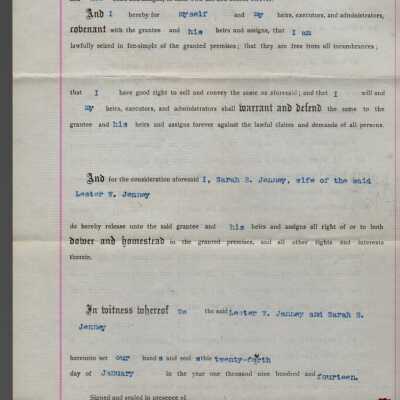 And I hereby for myself and my heirs, executors, and administrators,
covenant with the grantee and his heirs and assigns, that I am
lawfully seized in fee-simple of the granted premises; that they are free from all incumbrances;
that I have good right to sell and convey the same as aforesaid; and that I will and
my heirs, executors, and administrators shall warrant and defend the same to the
grantee and his heirs and assigns forever against the lawful claims and demands of all persons.
And for the consideration aforesaid I, Sarah S. Jenney, wife of the said
Lester W. Jenney
do hereby release unto the said grantee and his heirs and assigns all right of or to both
dower and homestead in the granted premises, and all other rights and interests
therein.
In witness whereof we the said Lester W. Jenney and Sarah S.
Jenney
hereunto set our hand s and seal s this twenty-forth
day of January in the year one thousand nine hundred and fourteen.
Signed and sealed in presence of